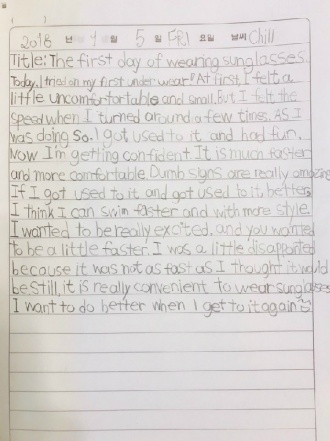 ( )
2018 년 1 월 5 일 FRI 요일 날씨 Chill
Title: The first day of wearing sunglasses.
Today, I tried on my first under wear! At first I felt a
little uncomfortable and small. But I felt the
speed when I turned around a few times. As I
was doing so. I got used to it and had fun.
Now I'm getting confident. It is much faster
and more comfortable. Dumb signs are really amazing
If I got used to it and got used to it, better,
I think I can swim faster and with more style
I wanted to be really excited, and you wanted
to be a little faster. I was a little disappointed
because it was not as fast as I thought it would
be. Still, it is really convenient to wear sunglasses
I want to do better when I get to it again